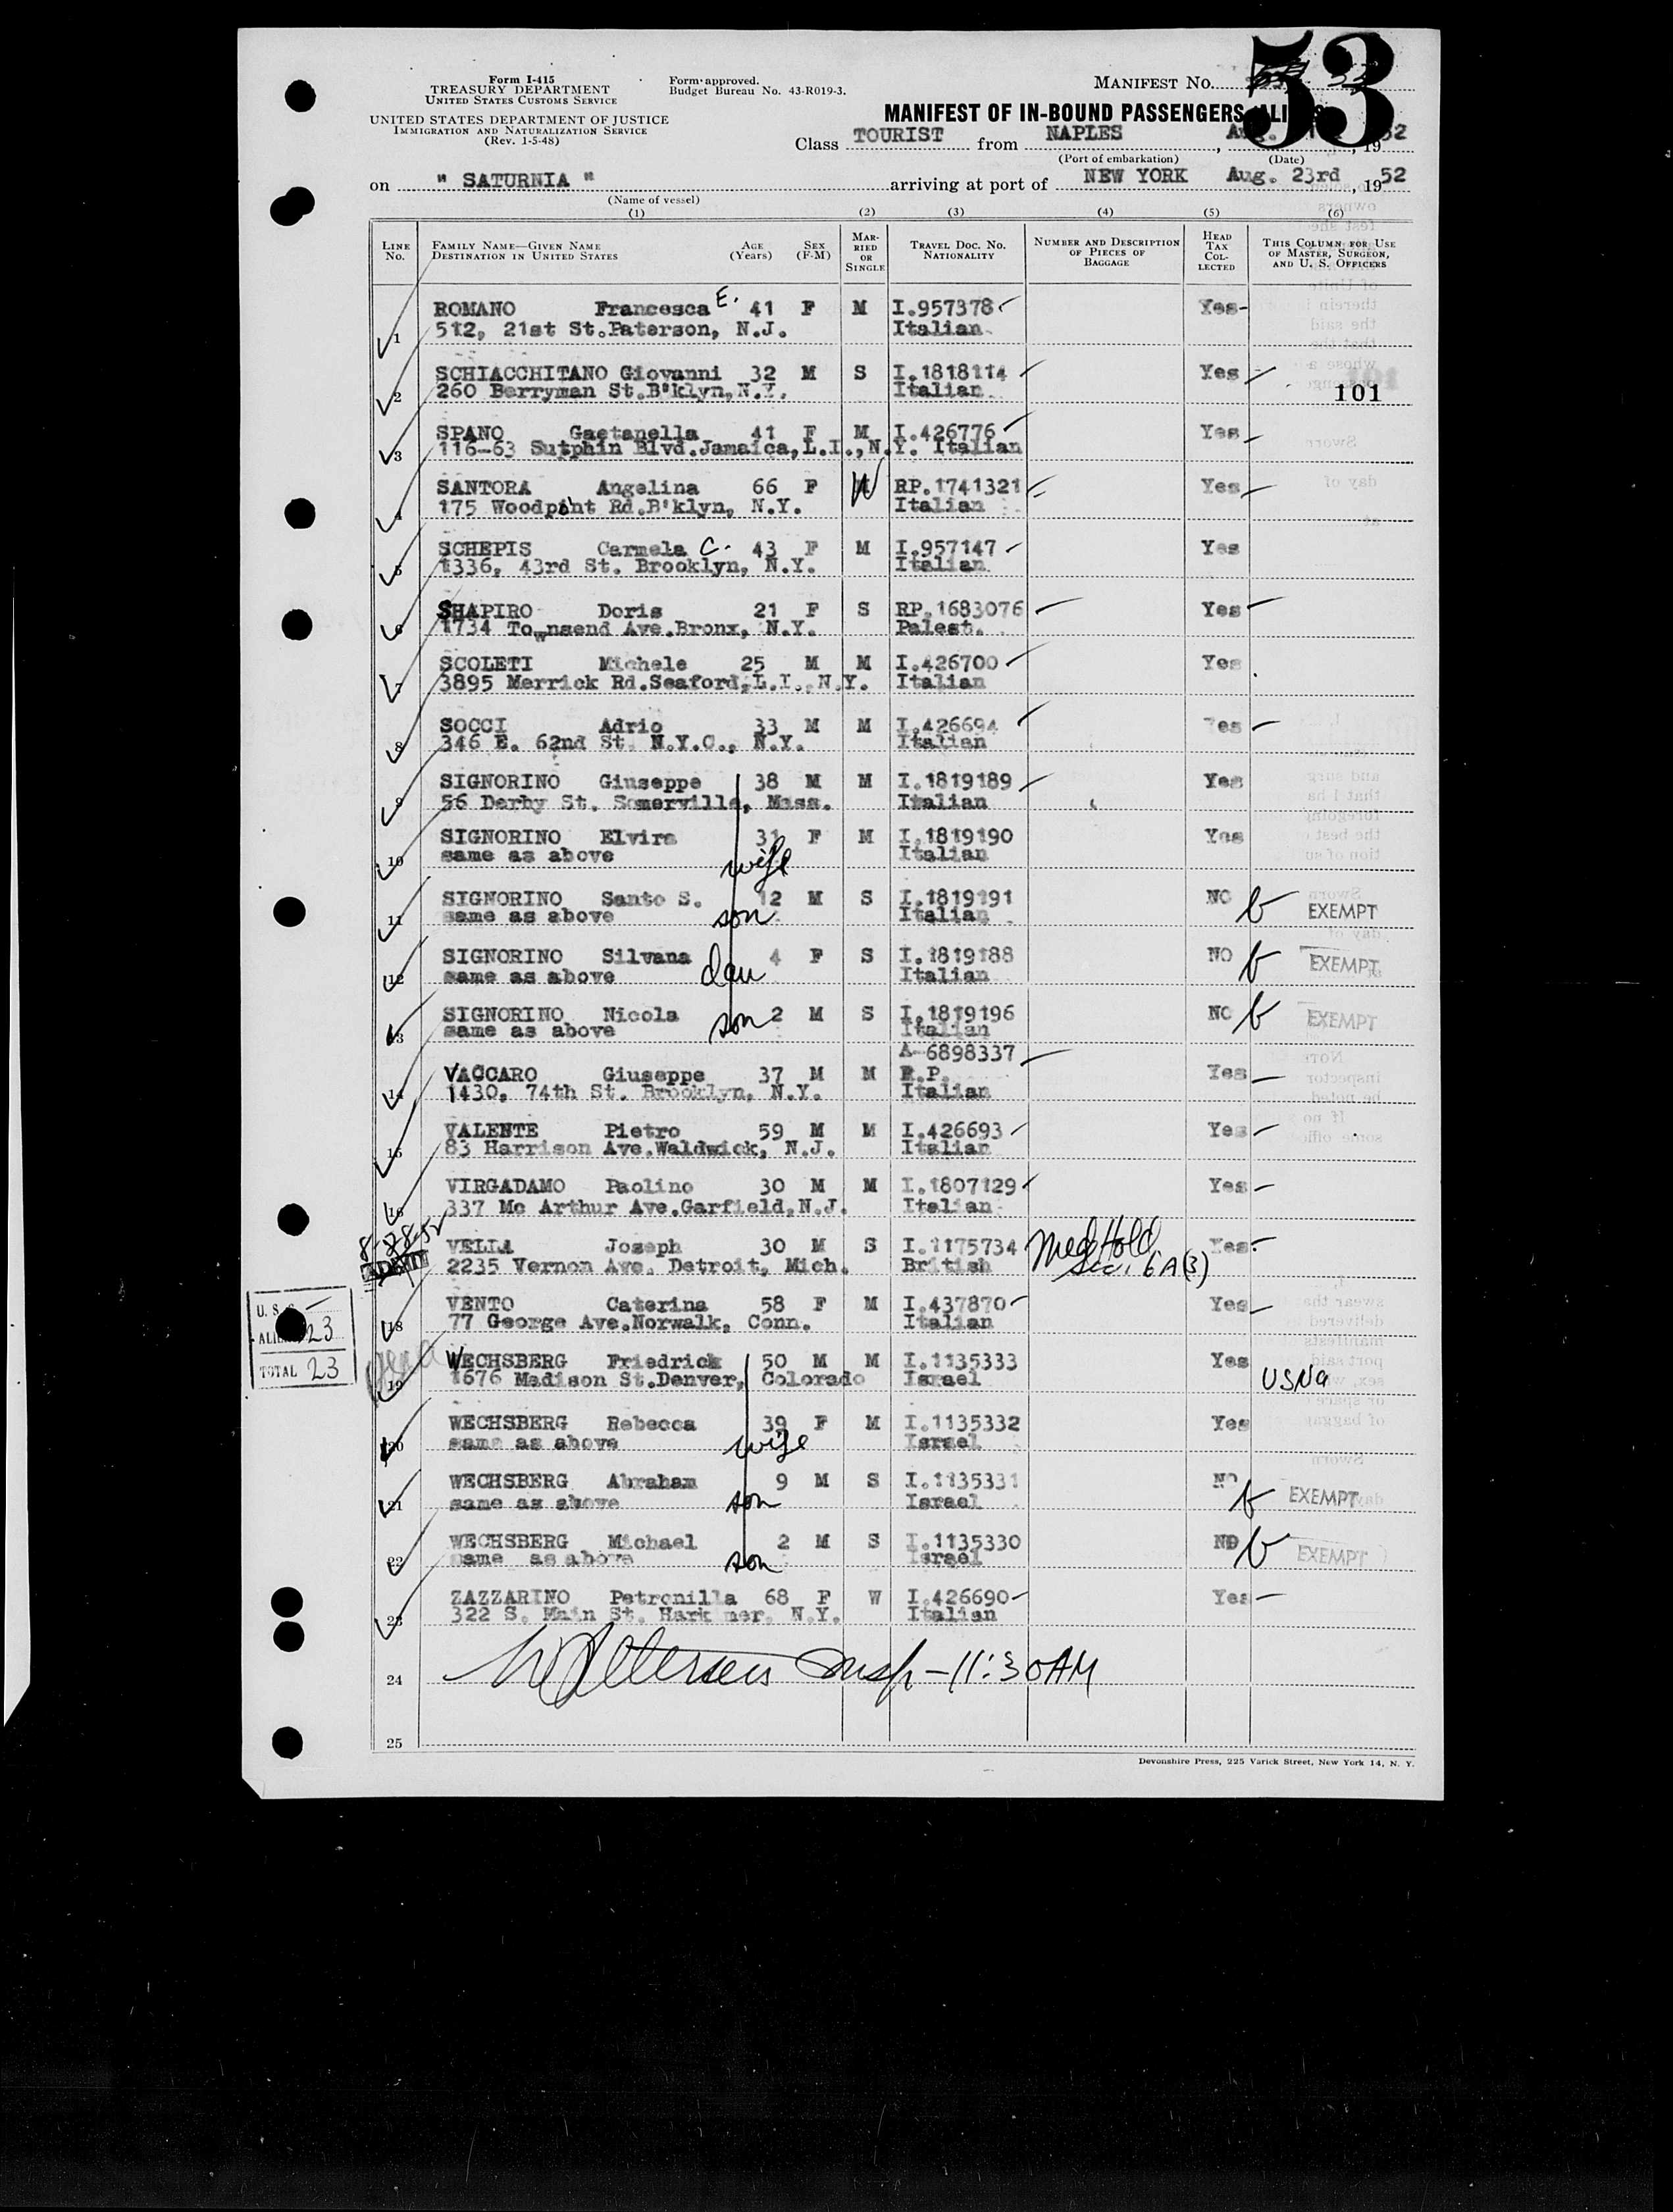 53
Form I-415
TREASURY DEPARTMENT
UNITED STATES CUSTOMS SERVICE
UNITED STATES DEPARTMENT OF JUSTICE
IMMIGRATION AND NATURALIZATION SERVICE
(Rev. 1-5-48)
Form approved.
Budget Bureau No. 43-R019-3.
MANIFEST No.
MANIFEST OF IN-BOUND PASSENGERS
Class TOURIST from NAPLES, 19 52
(Port of embarkation) (Date)
on " SATURNIA " arriving at port of NEW YORK Aug. 23rd, 1952
(Name of vessel)
(1) (2) (3) (4) (5) (6)
LINE No. FAMILY NAME—GIVEN NAME DESTINATION IN UNITED STATES AGE (Years) SEX (F-M) MARRIED OR SINGLE TRAVEL DOC. NO. NATIONALITY NUMBER AND DESCRIPTION OF PIECES OF BAGGAGE HEAD TAX COLLECTED THIS COLUMN FOR USE OF MASTER, SURGEON, AND U. S. OFFICERS
ROMANO Francesca E. 41 F M I.957378 Yes
1 512, 21st St.Paterson, N.J. Italian
SCHIACCHITANO Giovanni 32 M S I.1818114 Yes
2 260 Berryman St.B'klyn,N.Y. Italian 101
SPANO Gaetanella 41 F M I.426776 Yes
3 116-63 Sutphin Blvd.Jamaica,L.I.,N.Y. Italian
SANTORA Angelina 66 F W RP.1741321 Yes
4 175 Woodpoint Rd.B'klyn, N.Y. Italian
SCHEPIS Carmela C. 43 F M I.957147 Yes
5 1336, 43rd St. Brooklyn, N.Y. Italian
SHAPIRO Doris 21 F S RP.1683076 Yes
6 1734 Townsend Ave.Bronx, N.Y. Palest.
SCOLETI Michele 25 M M I.426700 Yes
7 3895 Merrick Rd.Seaford,L.I.,N.Y. Italian
SOCCI Adrio 33 M M I.426694 Yes
8 346 E. 62nd St. N.Y.C., N.Y. Italian
SIGNORINO Giuseppe 38 M M I.1819189 Yes
9 56 Derby St. Somerville, Mass. Italian
SIGNORINO Elvira 31 F M I.1819190 Yes
10 same as above wife Italian
SIGNORINO Santo S. 12 M S I.1819191 NO
11 same as above son Italian EXEMPT
SIGNORINO Silvana 4 F S I.1819188 NO
12 same as above dau Italian EXEMPT
SIGNORINO Nicola 2 M S I.1819196 NO
13 same as above son Italian EXEMPT
A-6898337
VACCARO Giuseppe 37 M M R.P. Yes
14 1430, 74th St. Brooklyn, N.Y. Italian
VALENTE Pietro 59 M M I.426693 Yes
15 83 Harrison Ave.Waldwick, N.J. Italian
VIRGADAMO Paolino 30 M M I.1807129 Yes
16 337 Mc Arthur Ave.Garfield,N.J. Italian
8-28-52 VELLA Joseph 30 M S I.1175734 Med Hold Yes
2235 Vernon Ave. Detroit, Mich. British Sec. 6A(3)
VENTO Caterina 58 F M I.437870 Yes
18 77 George Ave.Norwalk, Conn. Italian
U. S.
ALIEN 23
TOTAL 23
WECHSBERG Friedrick 50 M M I.1135333 Yes
19 1676 Madison St.Denver, Colorado Israel USNA
WECHSBERG Rebecca 39 F M I.1135332 Yes
20 same as above wife Israel
WECHSBERG Abraham 9 M S I.1135331 NO
21 same as above son Israel EXEMPT
WECHSBERG Michael 2 M S I.1135330 NO
22 same as above son Israel EXEMPT
ZAZZARINO Petronilla 68 F W I.426690 Yes
23 322 S. Main St. Harkmer, N.Y. Italian
24 Insp - 11:30AM
25
Devonshire Press, 225 Varick Street, New York 14, N. Y.